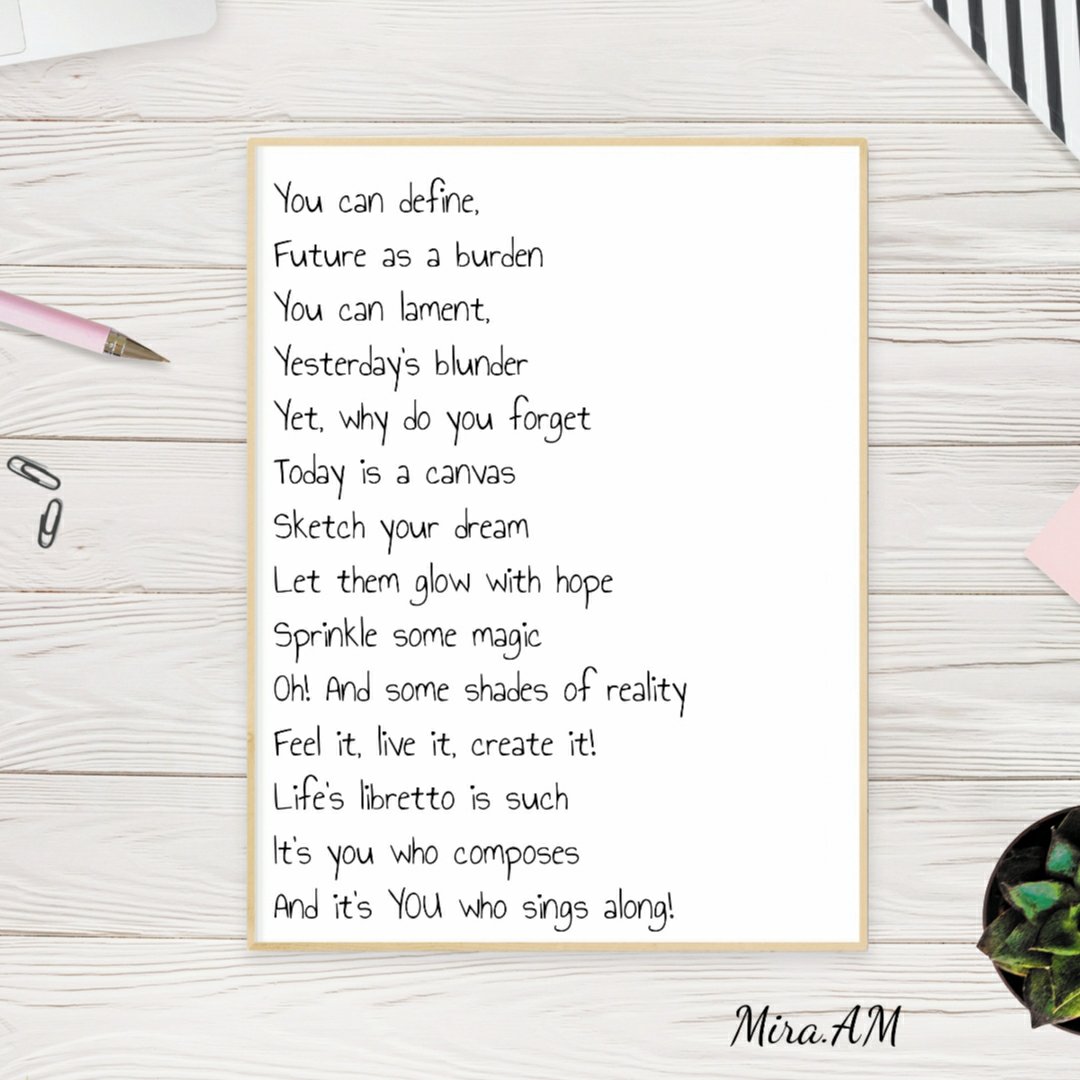 You can define,
Future as a burden
You can lament,
Yesterday's blunder
Yet, why do you forget
Today is a canvas
Sketch your dream
Let them glow with hope
Sprinkle some magic
Oh! And some shades of reality
Feel it, live it, create it!
Life's libretto is such
It's you who composes
And it's YOU who sings along!
Mira.AM